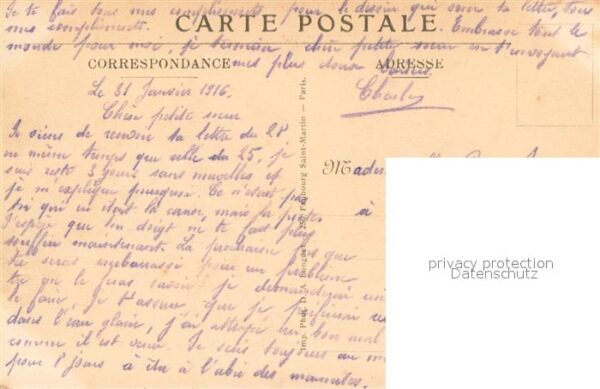 Je te fais tous mes compliments pour le dessin qui orne ta lettre, tous
mes compliments.
CARTE POSTALE.
Embrasse tout le
monde pour moi, je termine, chère petite sœur en t'envoyant
mes plus doux baisers.
CORRESPONDANCE
ADRESSE
Charles
Le 31 Janvier 1916.
Chère petite sœur
Je viens de recevoir ta lettre du 28
en même temps que celle du 25, je
suis resté 3 jours sans nouvelles et
je m'explique pourquoi. Ce n'était pas
toi qui en était la cause, mais la poste.
J'espère que ton doigt ne te fais plus
souffrir maintenant. La prochaine fois que
tu seras embarrassé pour un problème
tu me le feras savoir je
le faire, je t'assure que je
dans l'eau glacée, j'ai attrapé un bon mal
comme il est venu. Je suis toujours au
pour 8 jours à l'abri des marmites.
Madem
à
Imp. Phot. D. A. Longuet, 250, Faubourg Saint-Martin — Paris.
privacy protection
Datenschutz